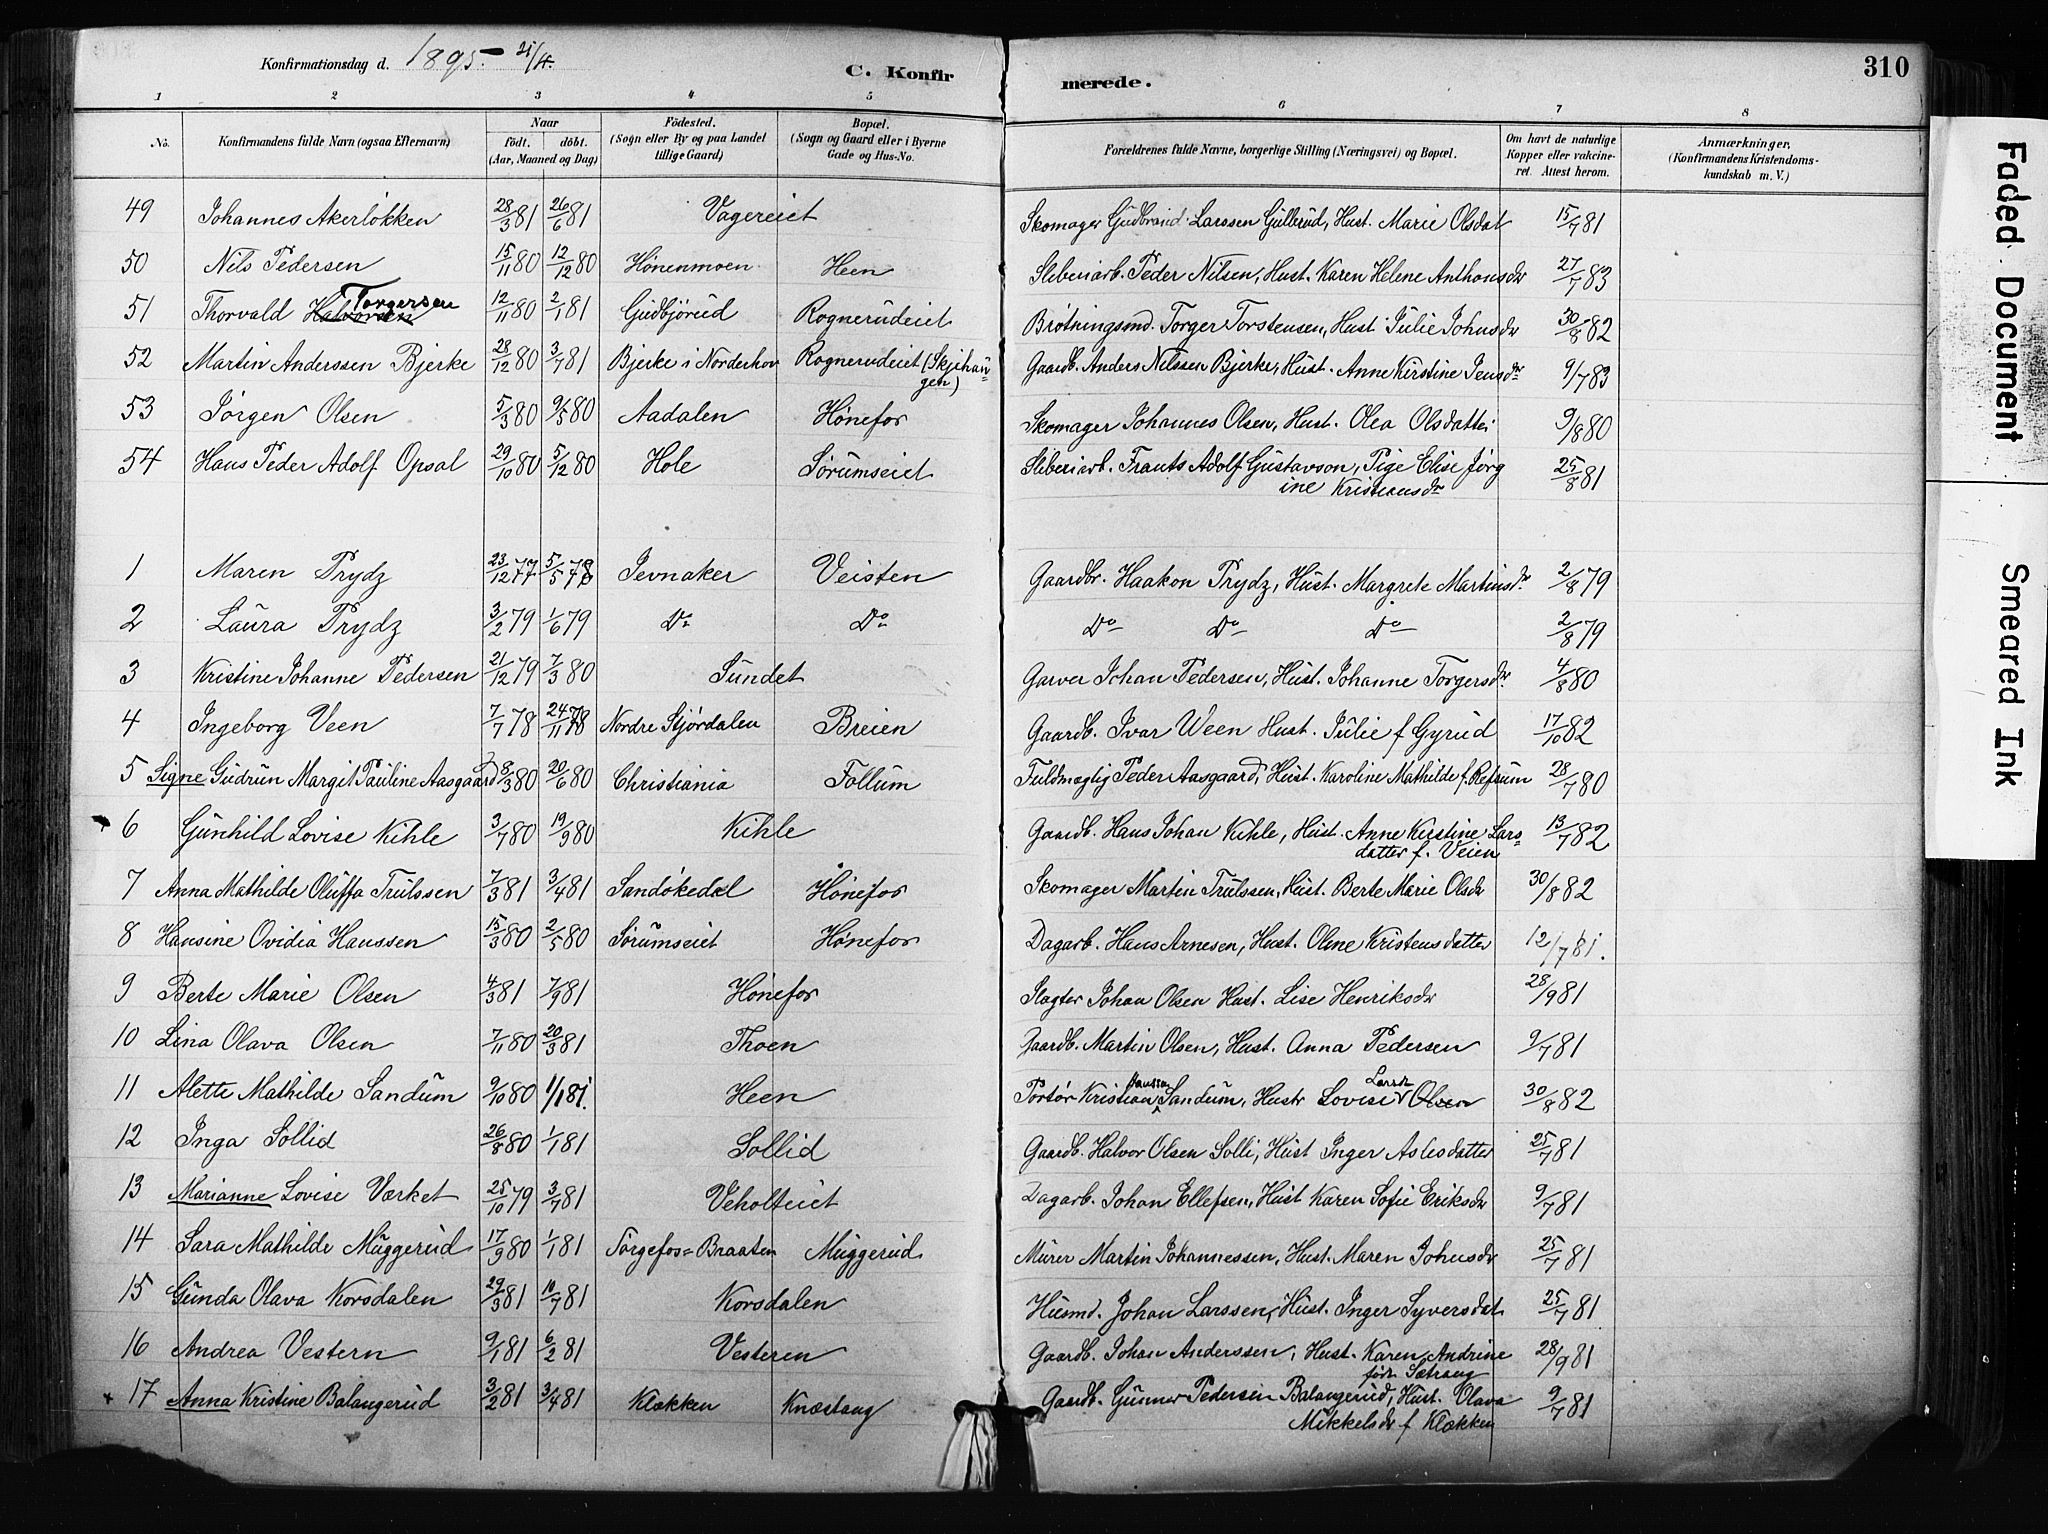 Konfirmationsdag d. 1895. 21/4.
C. Konfirmerede.
310
1 2 3 4 5 6 7 8
No.
Konfirmandens fulde Navn (ogsaa Efternavn)
Naar født. døbt. (Aar, Maaned og Dag)
Fødested. (Sogn eller By og paa Landet tillige Gaard)
Bopæl. (Sogn og Gaard eller i Byerne Gade og Hus-No.
Forældrenes fulde Navne, borgerlige Stilling (Næringsvei) og Bopæl.
Om havt de naturlige Kopper eller vakcineret. Attest herom.
Anmærkninger, (Konfirmandens Kristendomskundskab m. V.)
49 Johannes Akerløkken 28/3 81 26/6 81 Vagereiet Skomager Gudbrand Larssen Gullerud, Hust. Marie Olsdat 15/7 81
50 Nils Pedersen 15/11 80 12/12 80 Hønenmoen Heen Sliberiarb. Peder Nilsen, Hust. Karen Helene Anthonsdr 27/7 83
51 Thorvald Halvorsen Torgersen 12/11 80 2/1 81 Gudbjørud Rognerudeiet Brøtningsmd. Torger Torstensen, Hust. Julie Johnsdr 30/8 82
52 Martin Anderssen Bjerke 28/12 80 3/7 81 Bjerke i Norderhov Rognerudeiet (Skjihaugen) Gaardb. Anders Nilssen Bjerke, Hust. Anne Kirstine Jensdr 9/7 83
53 Jørgen Olsen 5/3 80 9/5 80 Aadalen Hønefos Skomager Johannes Olsen, Hust. Olea Olsdatter 9/8 80
54 Hans Peder Adolf Opsal 29/10 80 5/12 80 Hole Sørumseiet Sliberiarb. Frants Adolf Gustavson, Pige Elise Jørg
ine Kristiansdr 25/8 81
1 Maren Prydz 23/12 77 5/5 78 Jevnaker Veisten Gaardbr. Haakon Prydz, Hust. Margrete Martinsdr. 2/8 79
2 Laura Prydz 3/2 79 1/6 79 Do Do Do Do Do 2/8 79
3 Kristine Johanne Pedersen 21/12 79 7/3 80 Sundet Garver Johan Pedersen, Hust. Johanne Torgersdr. 4/8 80
4 Ingeborg Veen 7/7 78 24/11 78 Nordre Stjørdalen Breien Gaardb. Ivar Ween Hust. Julie f Gyrud 17/10 82
5 Signe Gudrun Margit Pauline Aasgaard 8/3 80 20/6 80 Christiania Follum Fuldmægtig Peder Aasgaard, Hust. Karoline Mathilde f. Refsum 28/7 80
6 Gunhild Lovise Kihle 3/7 80 19/9 80 Kihle Gaardb. Hans Johan Kihle, Hust. Anne Kirstine Lars=
datter f. Veien 13/7 82
7 Anna Mathilde Oluffa Trulssen 7/3 81 3/4 81 Sandøkedal Hønefos Skomager Martin Trulssen, Hust. Berte Marie Olsdr 30/8 82
8 Hansine Ovidia Hanssen 15/3 80 2/5 80 Sørumseiet Hønefos Dagarb. Hans Arnesen, Hust. Oline Kristensdatter 12/7 81.
9 Berte Marie Olsen 4/3 81 7/9 81 Hønefos Slagter Johan Olsen Hust. Lise Henriksdr 28/9 81
10 Lina Olava Olsen 7/11 80 20/3 81 Thoen Gaardb. Martin Olsen, Hust. Anna Pedersen 9/7 81
11 Alette Mathilde Sandum 9/10 80 1/1 81. Heen Portør Kristian Hanssen Sandum, Hustr Lovise Larsdr Olsen 30/8 82
12 Inga Sollid 26/8 80 1/1 81 Sollid Gaardb. Halvor Olsen Solli, Hust Inger Aslesdatter 25/7 81
13 Marianne Lovise Værket 25/10 79 3/7 81 Veholteiet Dagarb. Johan Ellefsen, Hust Karen Sofie Eriksdr 9/7 81
14 Sara Mathilde Muggerud 17/9 80 1/1 81 Sørgefos=Braaten Muggerud Murer Martin Johannessen, Hust. Maren Johnsdr 25/7 81
15 Gunda Olava Korsdalen 29/3 81 10/7 81 Korsdalen Husmd. Johan Larssen, Hust. Inger Syversdat 25/7 81
16 Andrea Vestern 9/1 81 6/2 81 Vesteren Gaardb. Johan Anderssen, Hust. Karen Andrine
født Sætrang 28/9 81
17 Anna Kristine Balangerud 3/2 81 3/4 81 Klækken Knæstang Gaardb. Gunner Pedersen Balangerud, Hust. Olava
Mikkelsdr f Klækken 9/7 81
Faded Document
Smeared Ink